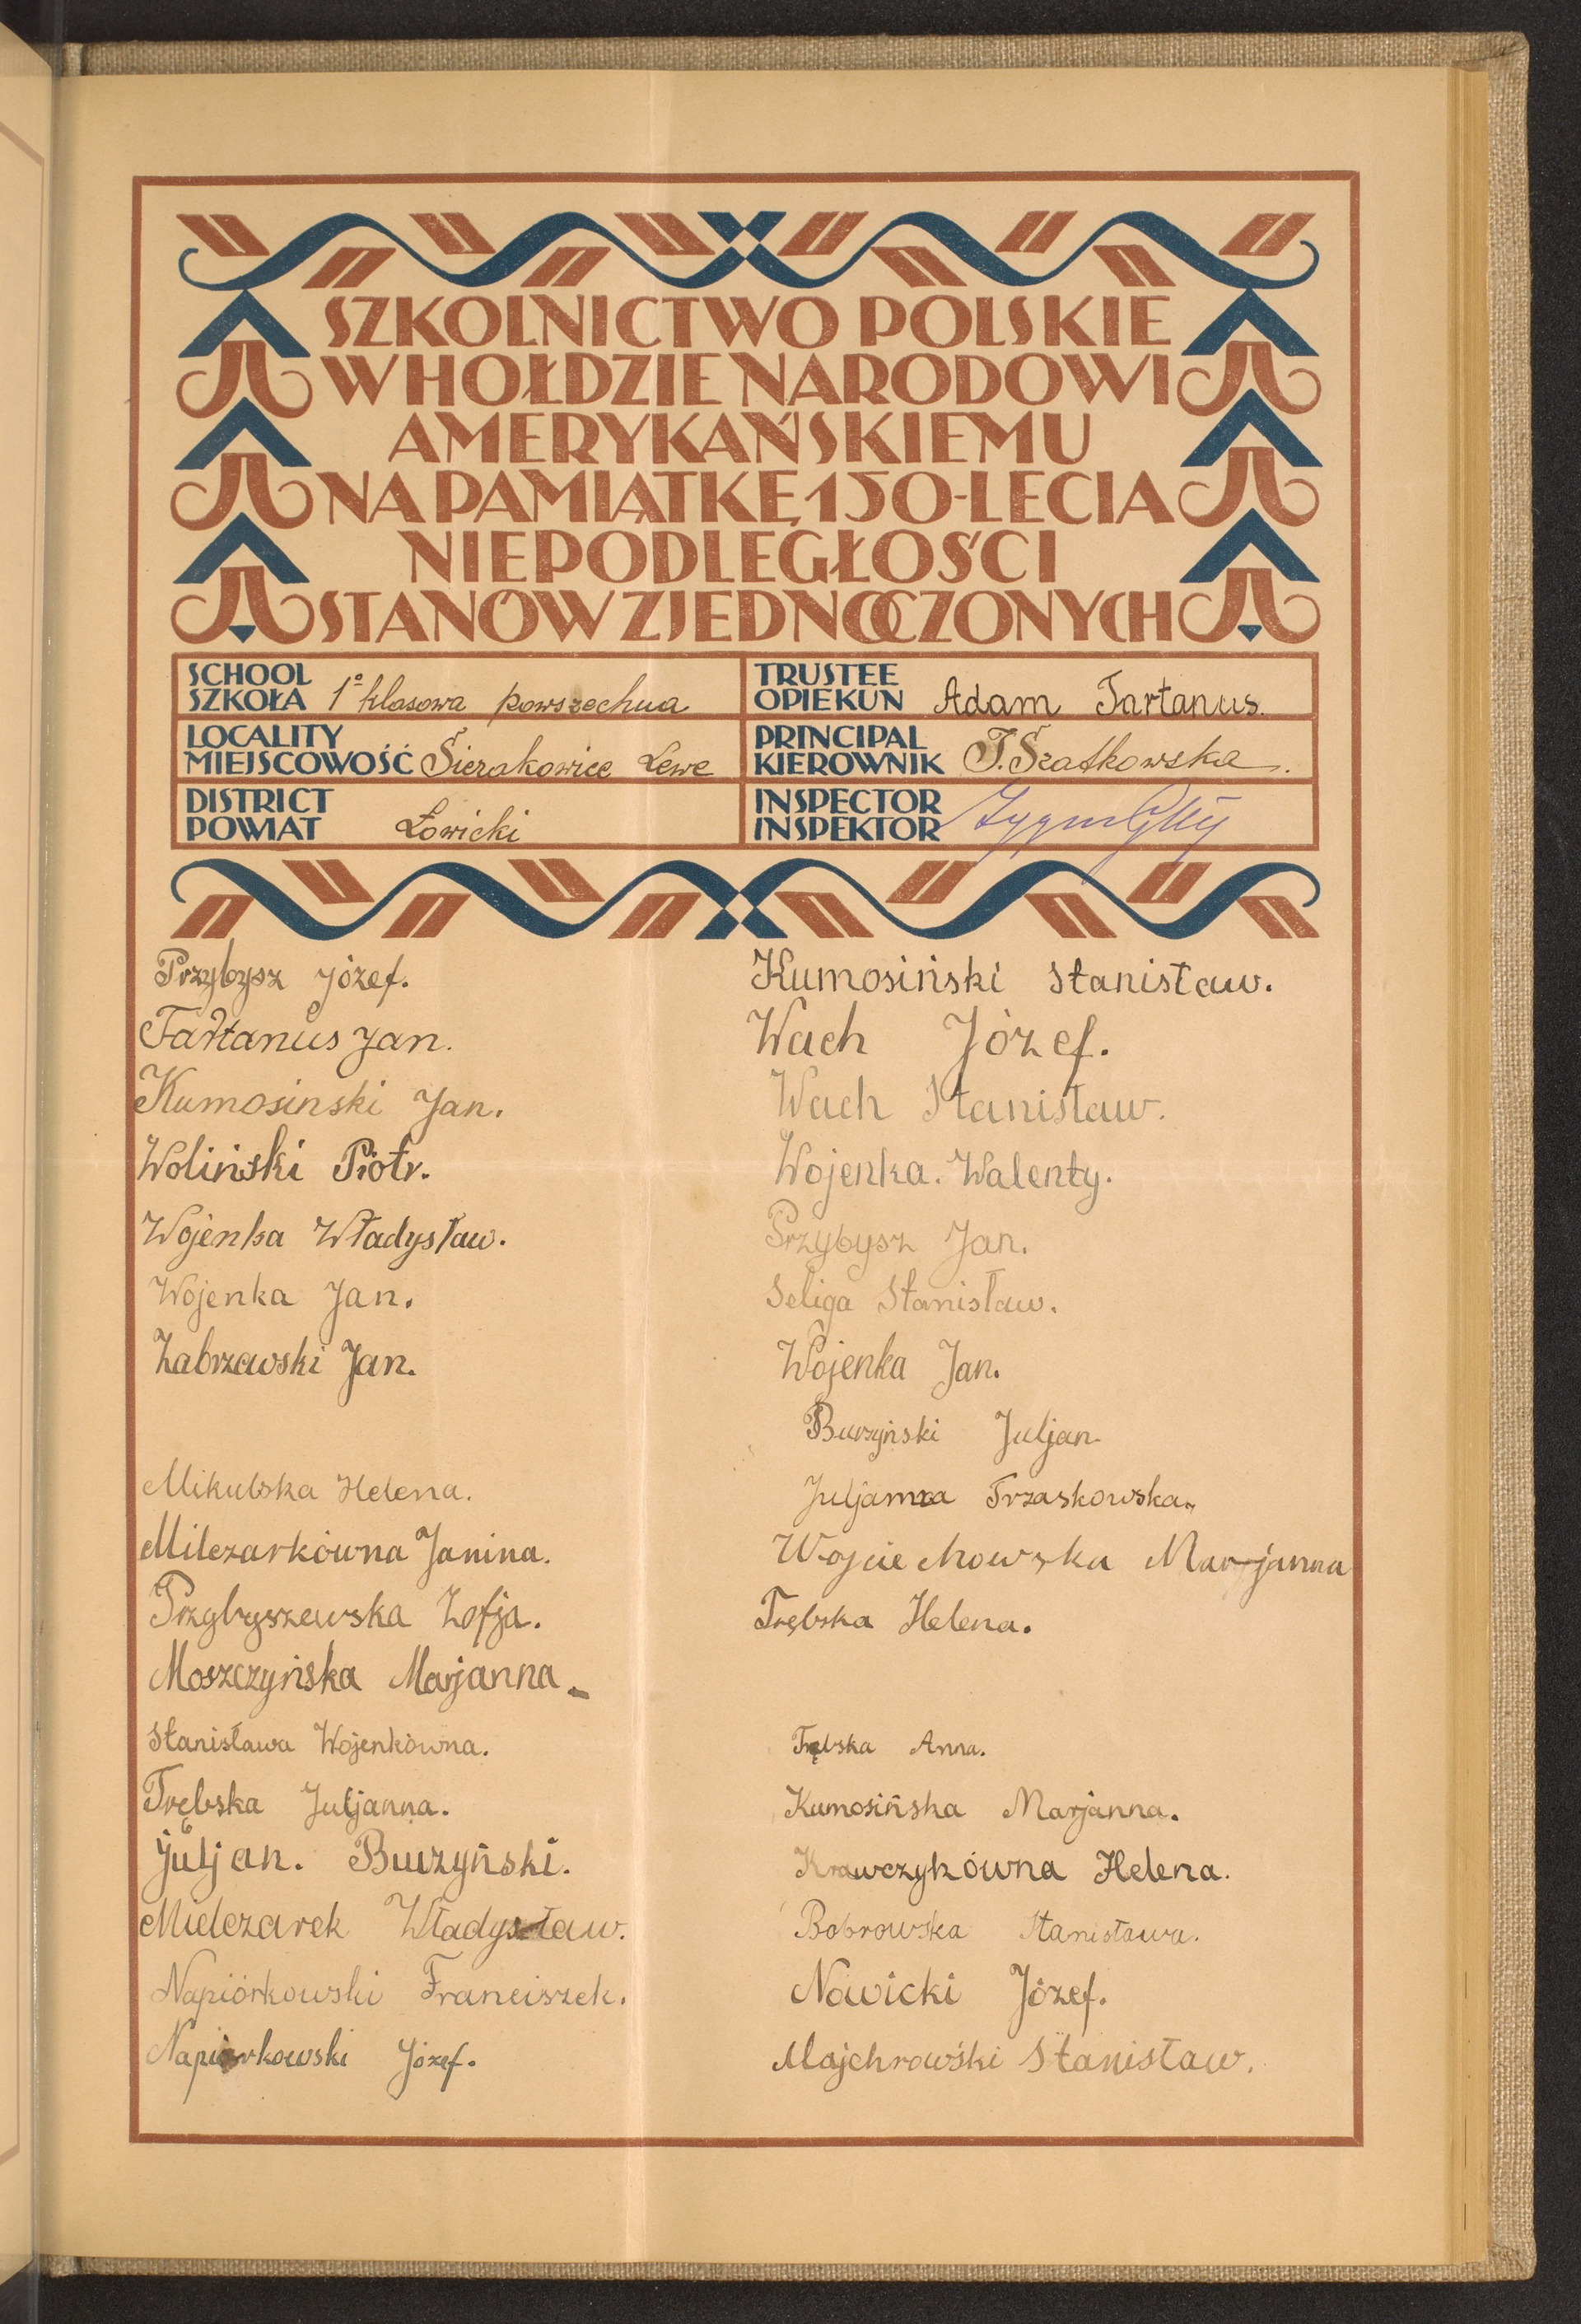 SZKOLNICTWO POLSKIE
W HOŁDZIE NARODOWI
AMERYKAŃSKIEMU
NA PAMIĄTKĘ 150-LECIA
NIEPODLEGŁOŚCI
STANÓW ZJEDNOCZONYCH
SCHOOL
SZKOŁA 1º klasowa powszechna
TRUSTEE
OPIEKUN Adam Tartanus.
LOCALITY
MIEJSCOWOŚĆ Sierakowice Lewe
PRINCIPAL
KIEROWNIK T. Szatkowska.
DISTRICT
POWIAT Łowicki
INSPECTOR
INSPEKTOR
Przybysz Józef.
Tartanus Jan.
Kumosinski Jan.
Woliński Piotr.
Wojenka Władysław.
Wojenka Jan.
Zabrzewski Jan.
Mikulska Helena.
Milczarkówna Janina.
Przybyszewska Zofja.
Moszczyńska Marjanna.
Stanisława Wojenkówna.
Trębska Juljanna.
Juljan. Burzyński.
Mielczarek Władysław.
Napiórkowski Franciszek.
Napiórkowski Józef.
Kumosiński Stanisław.
Wach Józef.
Wach Stanisław.
Wojenka. Walenty.
Przybysz Jan.
Seliga Stanisław.
Wojenka Jan.
Burzyński Juljan
Juljanna Trzaskowska.
Wojciechowska Marjanna
Trębska Helena.
Trębska Anna.
Kumosińska Marjanna.
Krawczykówna Helena.
Bobrowska Stanisława.
Nowicki Józef.
Majchrowski Stanisław.